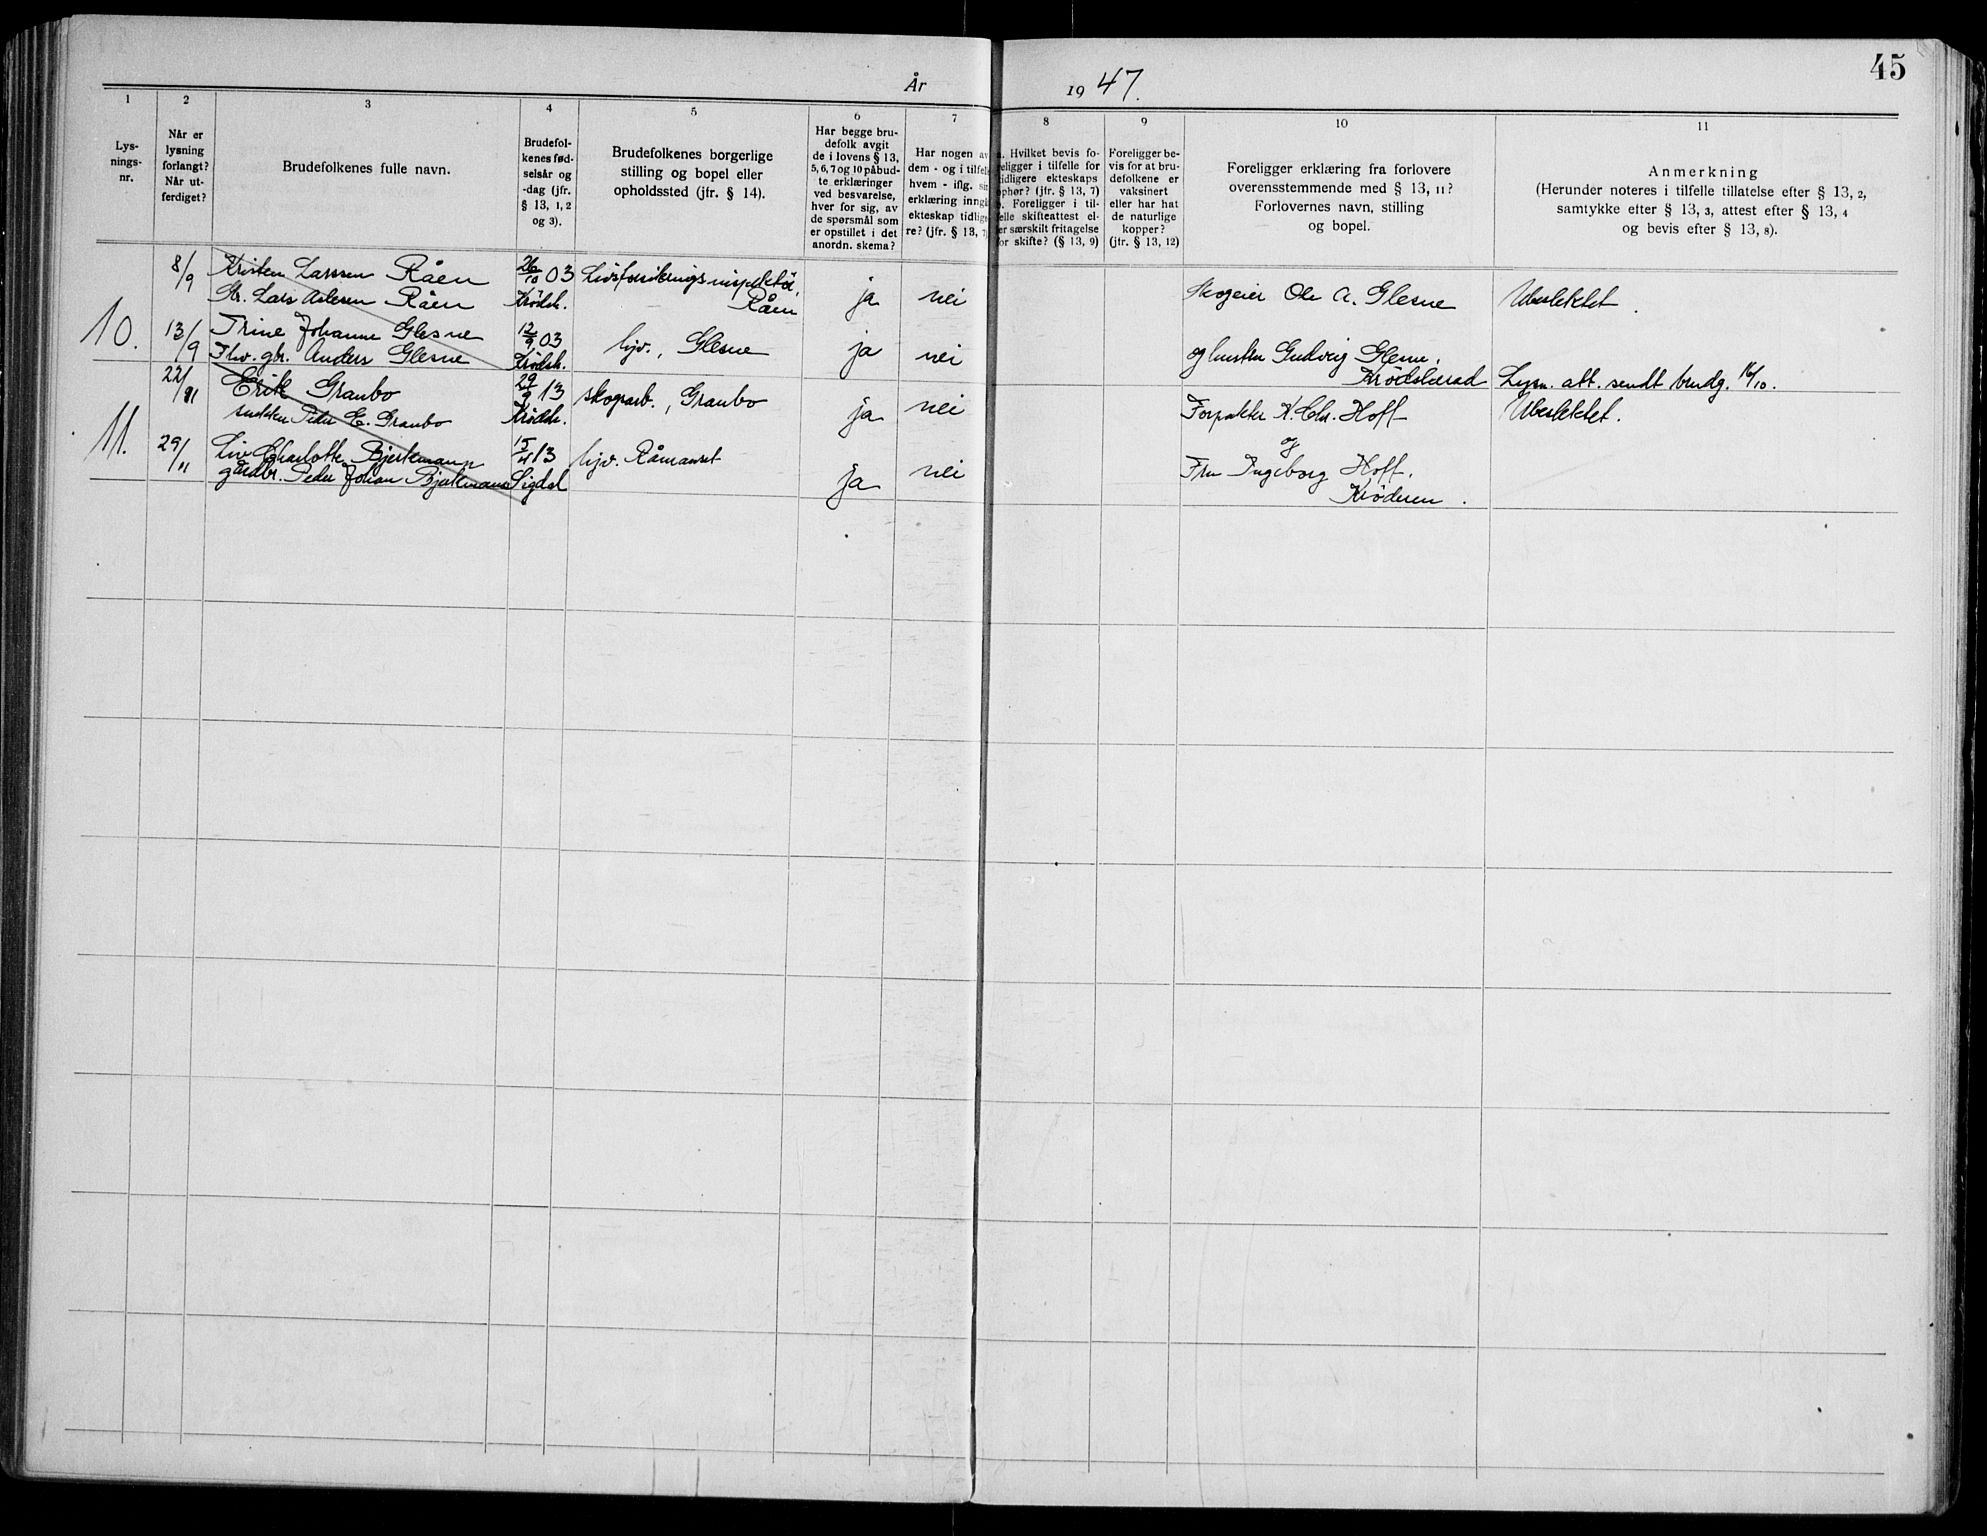 45
År 1947.
1 2 3 4 5 6 7 8 9 10 11
Lys-
nings-
nr.
Når er
lysning
forlangt?
Når ut-
ferdiget?
Brudefolkenes fulle navn.
Brudefol-
kenes fød-
selsår og
-dag (jfr.
§ 13, 1, 2
og 3).
Brudefolkenes borgerlige
stilling og bopel eller
opholdssted (jfr. § 14).
Har begge bru-
defolk avgit
de i lovens § 13,
5, 6, 7 og 10 påbud-
te erklæringer
ved besvarelse,
hver for sig, av
de spørsmål som
er opstillet i det
anordn. skema?
Har nogen av
dem - og i tilfelle
hvem - iflg. sin
erklæring inngå
ekteskap tidlige
re? (jfr. § 13, 7
a. Hvilket bevis fo-
eligger i tilfelle for
tidligere ekteskaps
ophør? (jfr. § 13, 7)
b. Foreligger i til-
felle skifteattest el-
er særskilt fritagelse
for skifte? (§ 13, 9)
Foreligger be-
vis for at bru-
defolkene er
vaksinert
eller har hat
de naturlige
kopper?
(jfr. § 13, 12)
Foreligger erklæring fra forlovere
overensstemmende med § 13, 11?
Forlovernes navn, stilling
og bopel.
Anmerkning
(Herunder noteres i tilfelle tillatelse efter § 13, 2,
samtykke efter § 13, 3, attest efter § 13, 4
og bevis efter § 13, 8).
8/9 Kristen Larssen Råen 26/10 03 Livsforsikringsinspektør,
Gbr. Lars Aslesen Råen Krødsh. Råen ja nei Skogeier Ole A. Glesne Ubeslektet.
10. 13/9 Trine Johanne Glesne 12/9 03 hjv., Glesne ja nei og lensm. Gudveig Glesne,
Fhv. gbr. Anders Glesne Krødsh. Krødsherad Lysn. att. sendt brudg. 16/10.
22/11 Erik Graubo 29/9 13 skogarb., Graubo ja nei Forpakter K. Chr. Hoff Ubeslektet.
Peder E. Graubo Krødsh. og
11. 29/11 Liv Charlotte Bjerkmann 15/4 13 hjv. Råmanset ja nei Fru Ingeborg Hoff,
gårdbr. Peder Johan Bjerkmann Sigdal Krøderen.